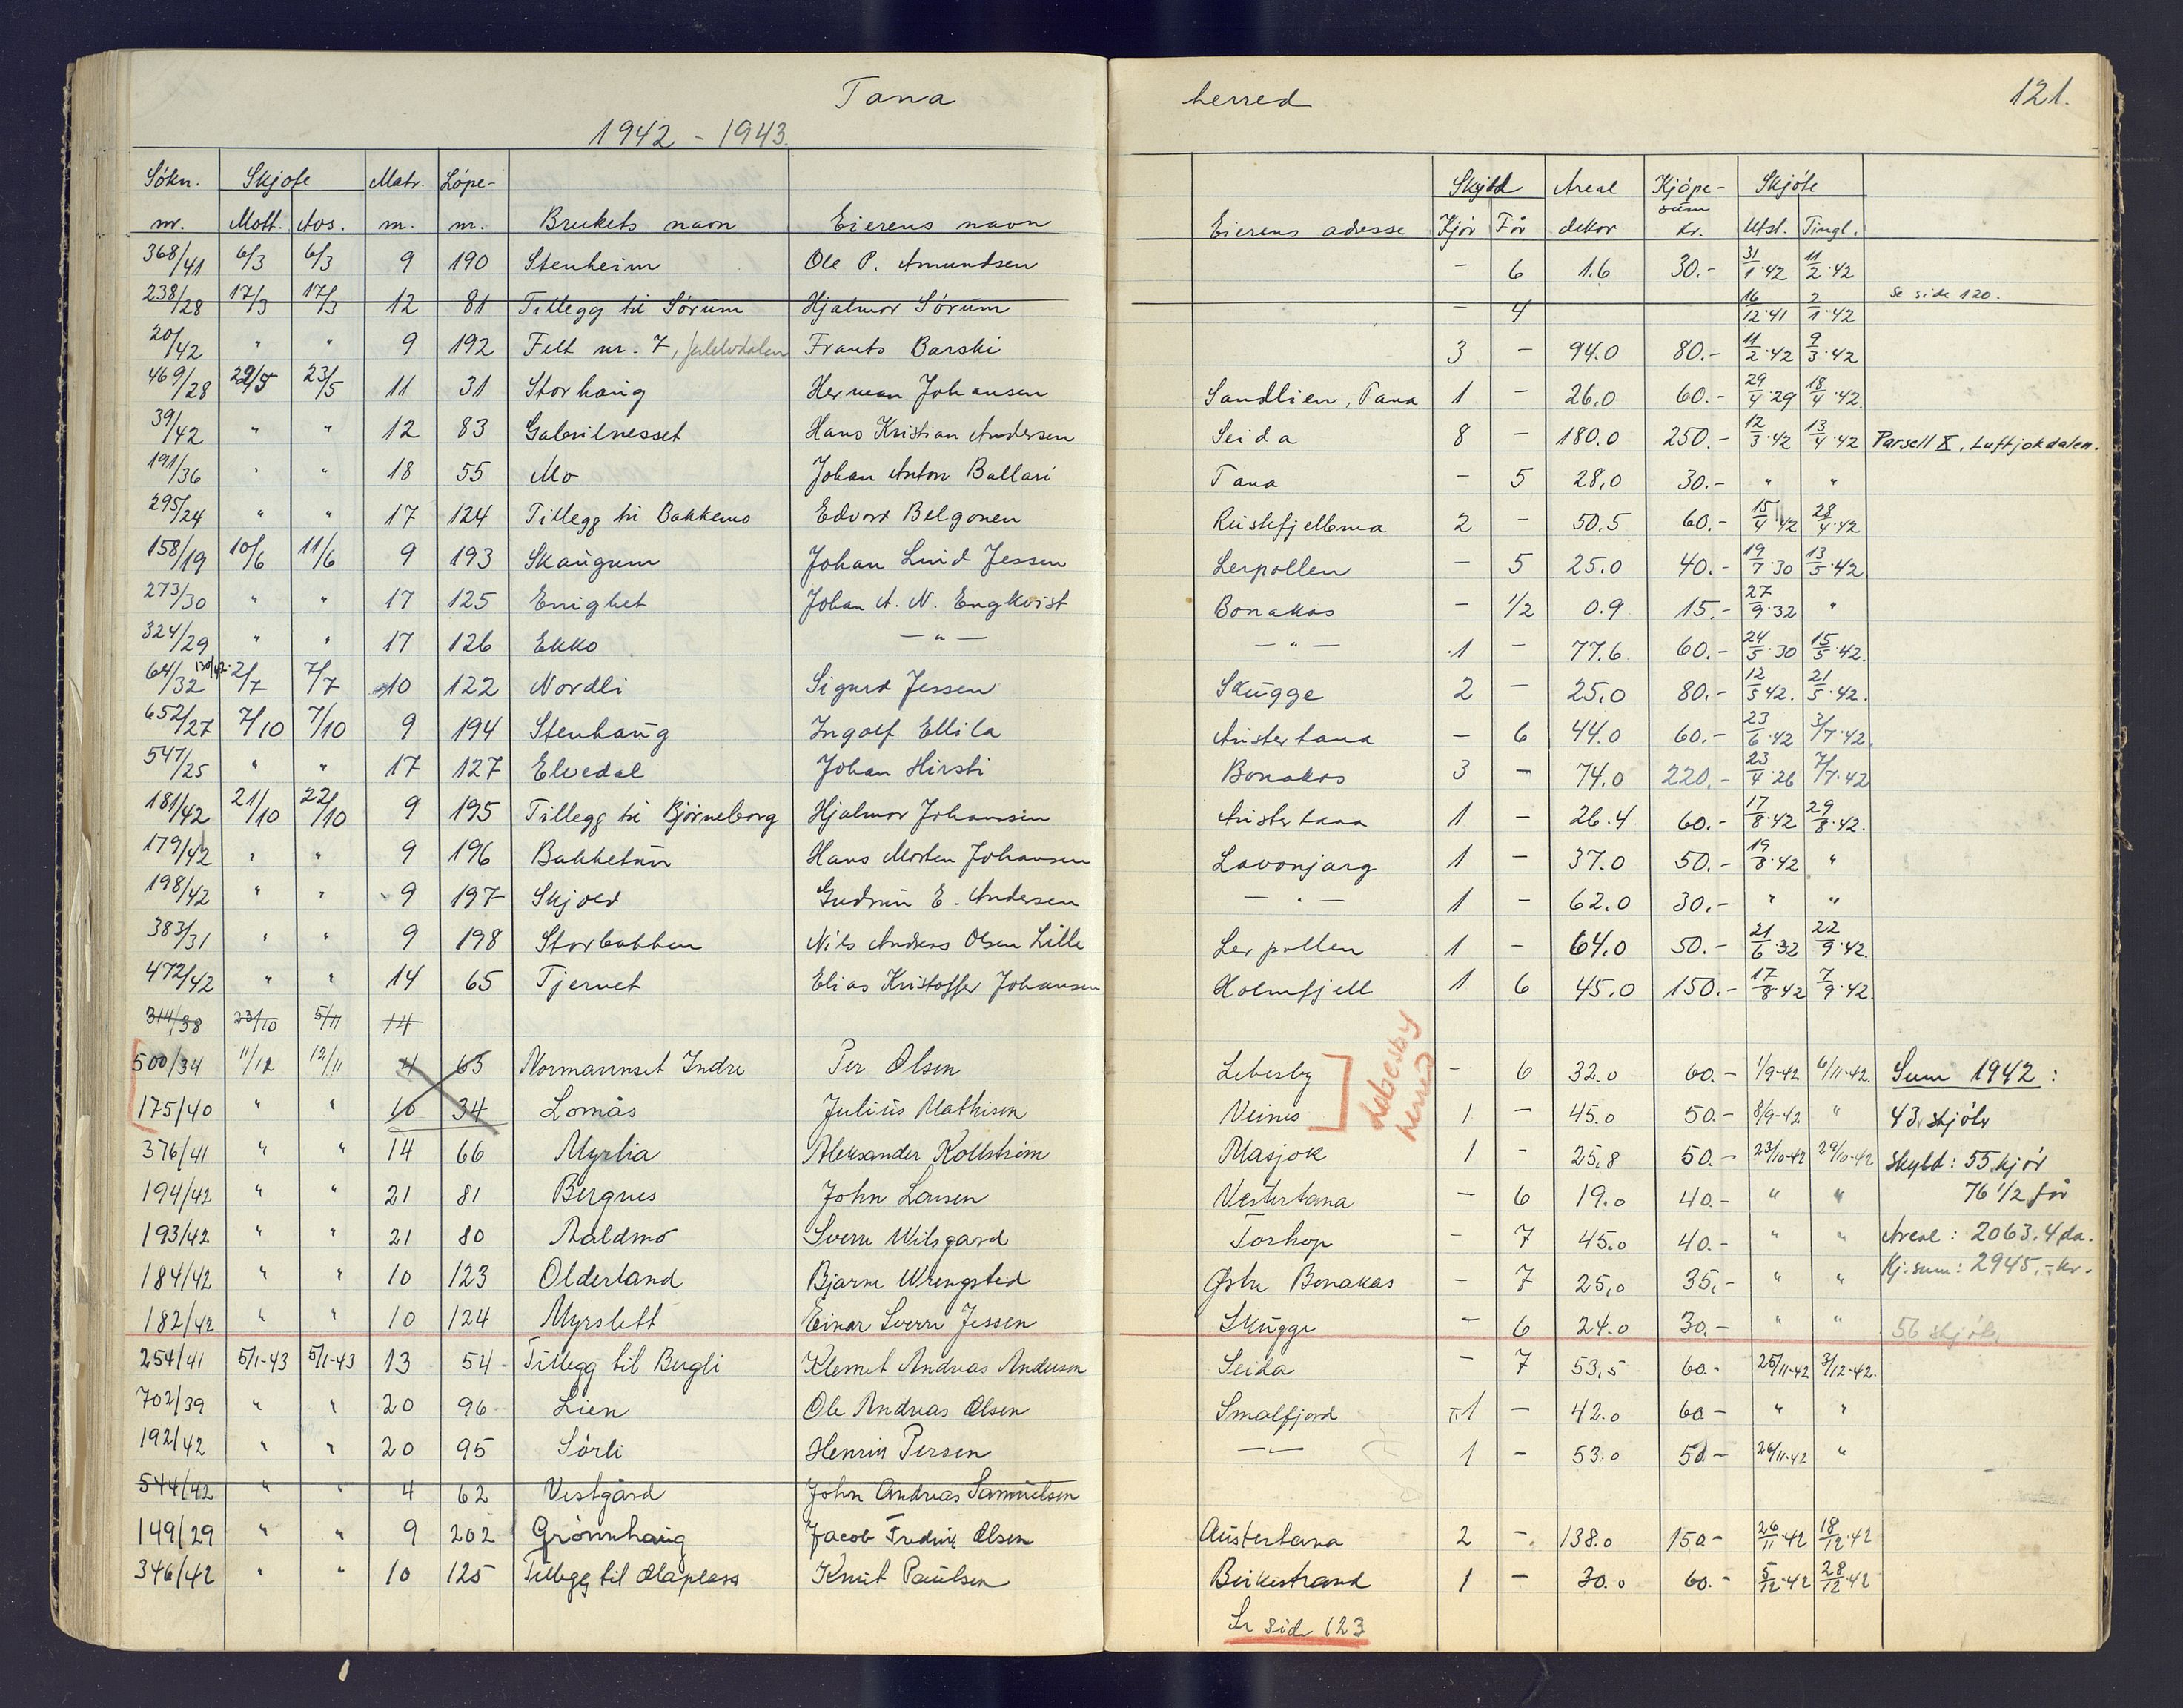 Tana herred 121.
1942 - 1943.
Sökn. Skjøte Matr. Löpe- Skyld Areal Kjöpe- Skjöte
nr. Mott. Avs. nr. nr. Brukets navn Eierens navn Eierens adresse Kjör För dekar sum kr. Utst. Tingl.
368/41 6/3 6/3 9 190 Stenheim Ole P. Amundsen - 6 1.6 30.- 31/1·42 11/2·42
238/28 17/3 17/3 12 81 Tillegg til Sörum Hjalmar Sörum - 4 16/12·41 2/1·42 Se side 120.
20/42 " " 9 192 Felt nr. 7, Frants Barski 3 - 94.0 80.- 11/2·42 9/3·42
469/28 22/5 23/5 11 31 Storhaug Herman Johansen Sandlien, Tana 1 - 26.0 60.- 29/4·29 18/4·42.
39/42 " " 12 83 Gabrilnesset Hans Kristian Andersen Seida 8 - 180.0 250.- 12/3·42 13/4·42 Parsell X, Luftjokdalen.
191/36 " " 18 55 Mo Johan Anton Ballari Tana - 5 28,0 30.- " "
295/24 " " 17 124 Tillegg til Bakkemo Edvard Belgonen Rustefjelbma 2 - 50.5 60.- 15/4 42 28/4·42
158/19 10/6 11/6 9 193 Skaugum Johan Lund Jessen Lerpollen - 5 25.0 40.- 19/7·30 13/5·42
273/30 " " 17 125 Enighet Johan A. N. Engkvist Bonakas - 1/2 0.9 15.- 27/9·32 "
324/29 " " 17 126 Ekko - " - - " - 1 - 77.6 60.- 24/5·30 15/5·42.
64/32 130/42· 2/7 7/7 10 122 Nordli Sigurd Jessen Skugge 2 - 25.0 80.- 12/5 42. 21/5·42.
652/27 7/10 7/10 9 194 Stenhaug Ingolf Ellila Austertana - 6 44.0 60.- 23/6·42 3/7·42.
547/25 " " 17 127 Elvedal Johan Hirsti Bonakas 3 - 74.0 220.- 23/4·26 7/7·42
181/42 21/10 22/10 9 195 Tillegg til Björneborg Hjalmar Johansen Austertana 1 - 26.4 60.- 17/8·42 29/8·42.
179/42 " " 9 196 Bakketun Hans Morten Johansen Lavonjarg 1 - 37.0 50.- 19/8·42 "
198/42 " " 9 197 Skjold Gudrun E. Andersen - " - 1 - 62.0 30.- " "
383/31 " " 9 198 Storbakken Nils Andreas Olsen Lille Lerpollen 1 - 64.0 50.- 21/6·32 22/9·42.
472/42 " " 14 65 Tjernet Elias Kristoffer Johansen Holmfjell 1 6 45.0 150.- 17/8·42 7/9·42.
314/38 23/10 5/11 14
500/34 11/12 12/11 4 63 Normannset Indre Per Olsen Lebesby - 6 32.0 60.- 1/9-42 6/11-42. Sum 1942 :
Lebesby herred
175/40 " " 10 34 Lomås Julius Mathisen Veines 1 - 45.0 50.- 8/9-42 " 43 skjöter
376/41 " " 14 66 Myrlia Aleksander Kollström Masjok 1 - 25,8 50.- 23/10-42 29/10-42 Skyld : 55 kjör
194/42 " " 21 81 Bergnes John Larsen Vestertana - 6 19.0 40.- " " 76 1/2 för
193/42 " " 21 80 Aaldmo Sverre Wilsgard Torhop - 7 45.0 40.- " " Areal : 2063.4 da.
184/42 " " 10 123 Olderland Bjarne Wrengsted Östre Bonakas - 7 25,0 35,- " " Kj.sum: 2945.- kr.
182/42 " " 10 124 Myrslett Einar Sverre Jessen Skugge - 6 24.0 30.- " " 56 skjöter
254/41 5/1-43 5/1-43 13 54 Tillegg til Bergli Klemet Andreas Andersen Seida - 7 53,5 60.- 25/11-42 3/12-42.
702/39 " " 20 96 Lien Ole Andreas Olsen Smalfjord 1 - 42.0 60 - " "
192/42 " " 20 95 Sörli Henrik Persen - " - 1 - 53.0 50 - 26/11-42 "
544/42 " " 4 62 Vestgård John Andreas Samuelsen
149/29 " " 9 202 Grönnhaug Jacob Fredrik Olsen Austertana 2 - 138.0 150 - 26/11·42 18/12·42
346/42 " " 10 125 Tillegg til Olaplass Knut Paulsen Birkestrand 1 - 30.0 60.- 5/12·42 28/12·42
Se side 123